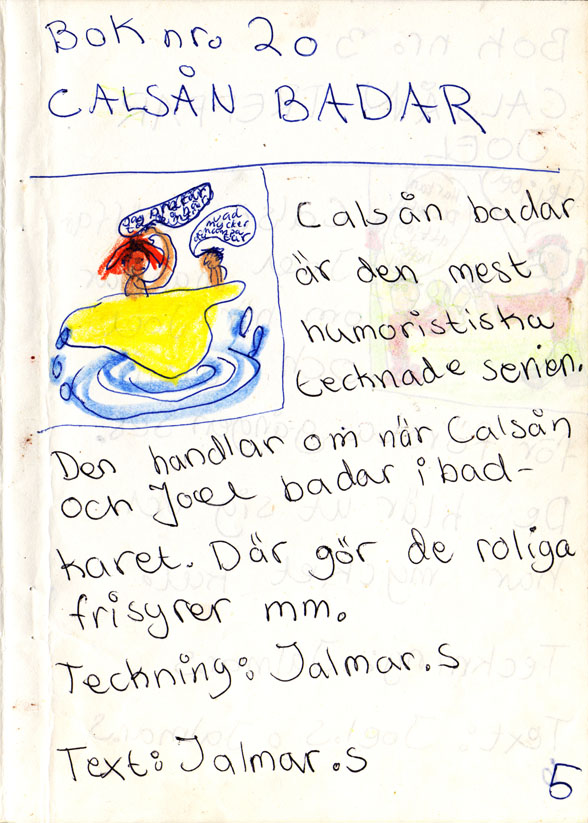 Bok nr. 20
CALSÅN BADAR
Calsån badar
är den mest
humoristiska
tecknade serien.
Den handlar om när Calsån
och Joel badar i bad-
karet. Där gör de roliga
frisyrer mm.
Teckning: Jalmar.S
Text: Jalmar.S
5